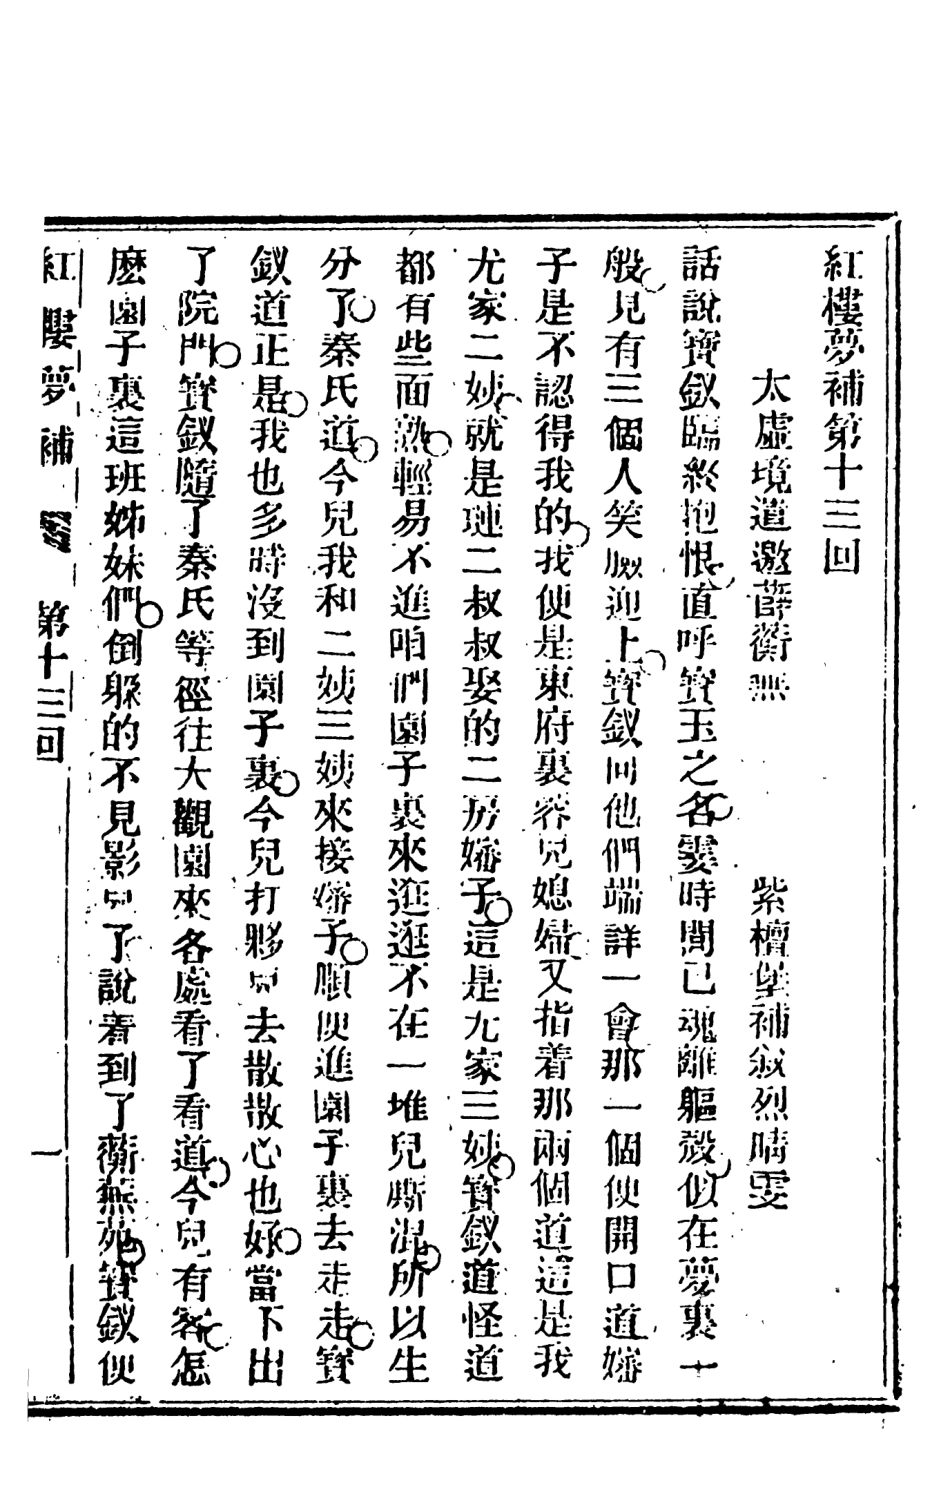 紅樓夢補第十三回
太虛境道邀薛蘅蕪　紫檀堡補敘烈晴雯
話說寶釵臨終抱恨直呼寶玉之名霎時間已魂離軀殼似在夢裏一
般見有三個人笑臉迎上寶釵回他們端詳一會那一個便開口道嬸
子是不認得我的我便是東府裏蓉兒媳婦又指着那兩個道這是我
尤家二姨就是璉二叔叔娶的二房嬸子這是尤家三姨寶釵道怪道
都有些面熟輕易不進咱們園子裏來逛逛不在一堆兒廝混所以生
分了秦氏道今兒我和二姨三姨來接嬸子順便進園子裏去走走寶
釵道正是我也多時沒到園子裏今兒打夥兒去散散心也好當下出
了院門寶釵隨了秦氏等徑往大觀園來各處看了看道今兒有客怎
麽園子裏這班姊妹們倒躲的不見影兒了說着到了蘅蕪苑寶釵便
紅樓夢補　第十三回　一